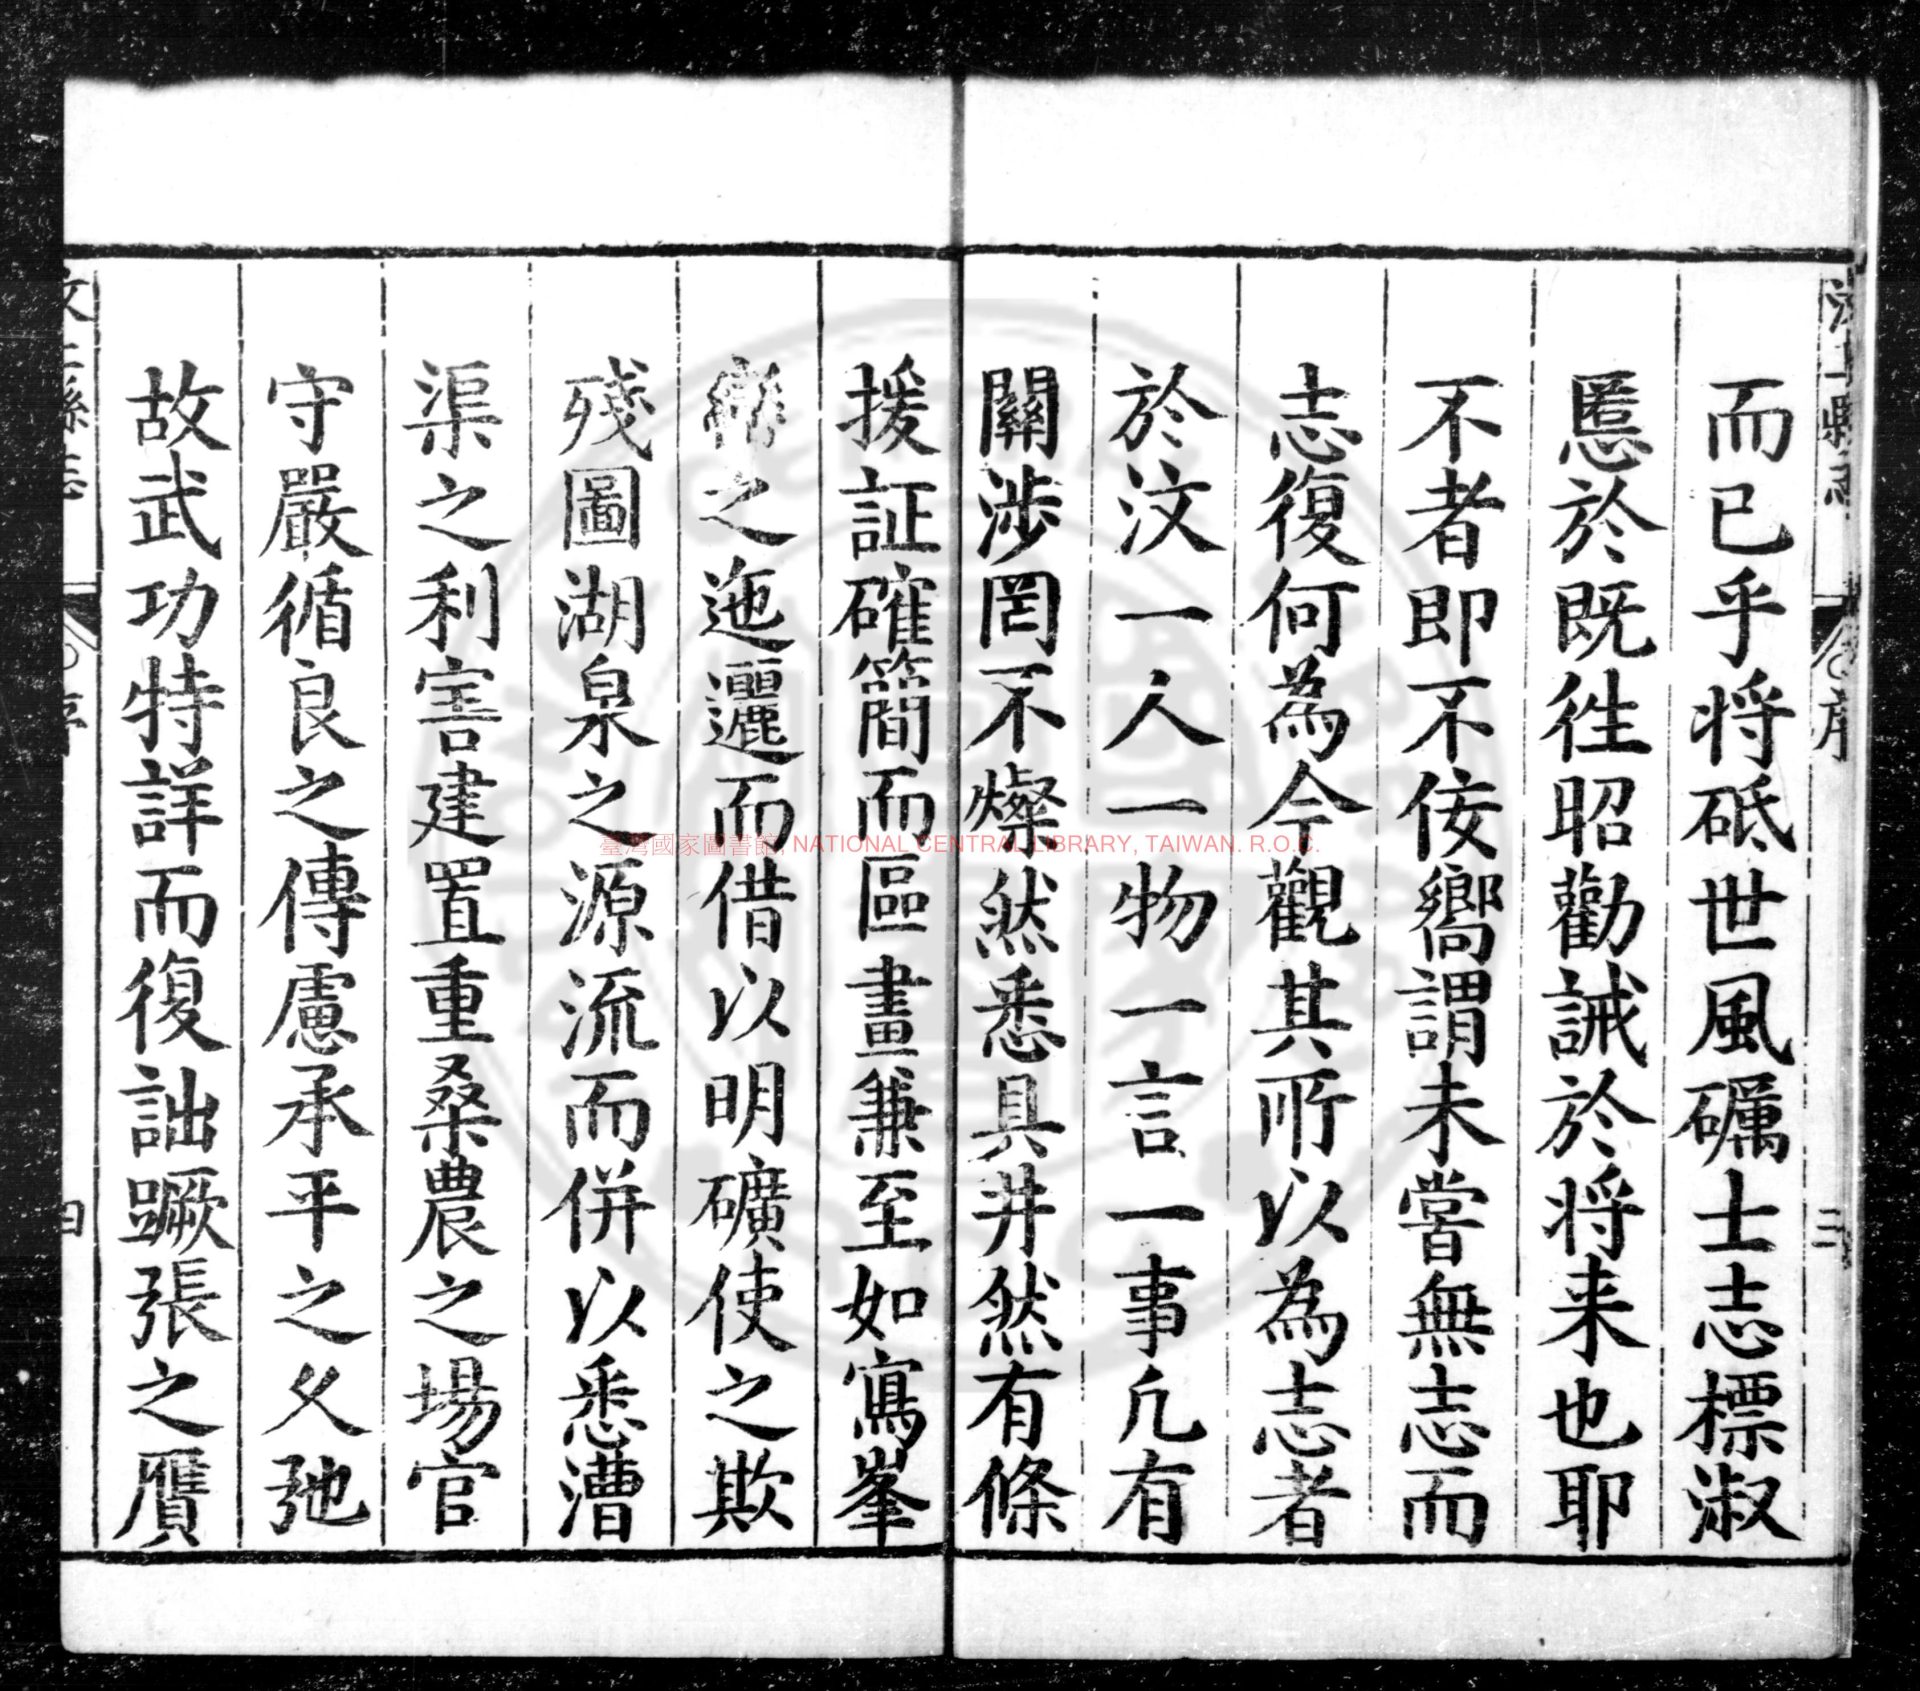 汶上縣志 序 三
而已乎将砥世風礪士志標淑
慝於既徃昭勸誡於将来也耶
不者即不侫嚮謂未嘗無志而
志復何為今觀其所以為志者
於汶一人一物一言一事凢有
關涉罔不燦然悉具井然有條
援証確簡而區畫兼至如寫峯
巒之迤邐而借以明礦使之欺
残圖湖泉之源流而併以悉漕
渠之利害建置重桑農之場官
守嚴循良之傳慮承平之乆弛
故武功特詳而復詘蹶張之贋
汶上縣志 序 四
臺灣國家圖書館, NATIONAL CENTRAL LIBRARY, TAIWAN. R.O.C.